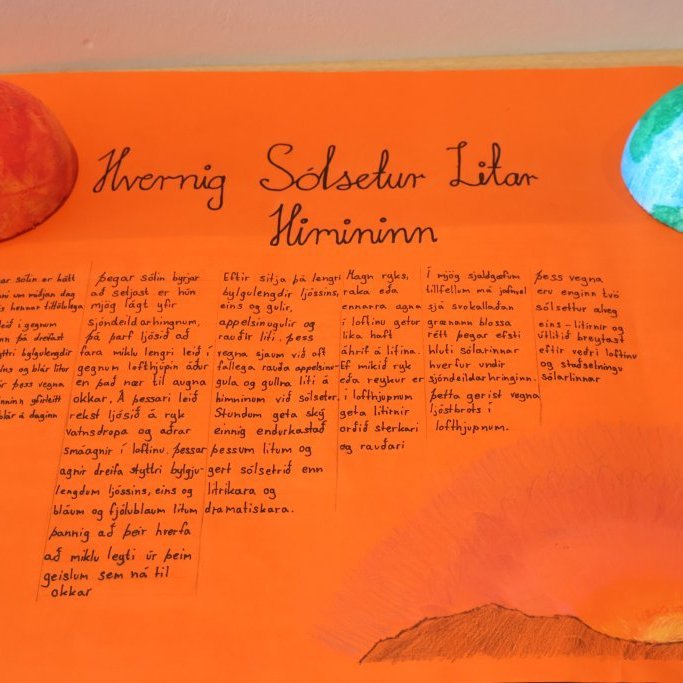 Hvernig Sólsetur Litar
Himininn
ar sólin er hátt
um miðjan dag
hennar tiltölulega
leið í gegnum
þá dreifast
styttri bylgjulengdir
og blár litur
þess vegna
himininn yfirleitt
blár á daginn
þegar sólin byrjar
að setjast er hún
mjög lágt yfir
sjóndeildarhringnum,
þá þarf ljósið að
fara miklu lengri leið í
gegnum lofthjúpin áður
en það nær til augna
okkar. Á þessari leið
rekst ljósið á ryk
vatnsdropa og aðrar
smáagnir í loftinu. þessar
agnir dreifa styttri bylgju-
lengdum ljóssins, eins og
bláum og fjólubláum litum
þannig að þeir hverfa
að miklu leyti úr þeim
geislum sem ná til
okkar
Eftir sitja þá lengri
bylgulengdir ljóssins,
eins og gulir,
appelsínugulir og
rauðir liti. þess
vegna sjáum við oft
fallega rauða appelsínu-
gula og gullna liti á
himninum við sólsetur.
Stundum geta ský
einnig endurkastað
þessum litum og
gert sólsetrið enn
litríkara og
dramatískara.
Magn ryks,
raka eða
ennarra agna
í loftinu getur
líka haft
áhrif á litina.
Ef mikið ryk
eða reykur er
í lofthjúpnum
geta litirnir
orðið sterkari
og rauðari
Í mjög sjaldgæfum
tilfellum má jafnvel
sjá svokallaðan
grænann blossa
rétt þegar efsti
hluti sólarinnar
hverfur undir
sjóndeildarhringinn.
þetta gerist vegna
ljóstbrots í
lofthjúpnum.
þess vegna
eru enginn tvö
sólsettur alveg
eins - litirnir og
útlitið breytast
eftir veðri loftinu
og staðselningu
sólarinnar